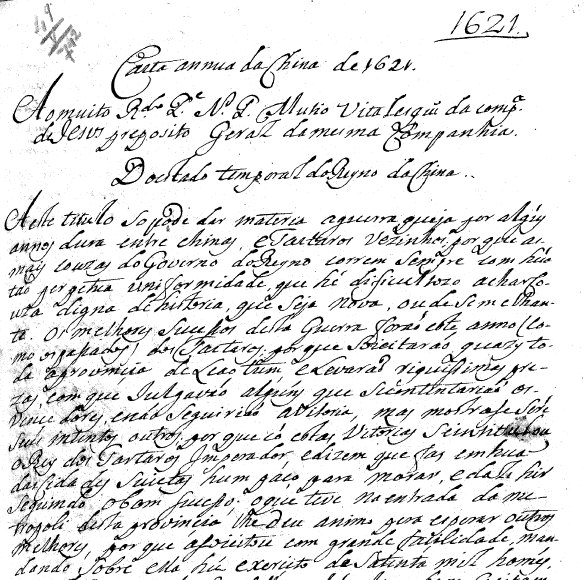 1621.
Carta annua da China de 1621.
Ao muito Rdo Pe N. P. Mutio Vitalesqui da Compa
de Jesus preposito Geral da mesma Companhia.
Do estado temporal do Reyno da China..
A este titulo so pode dar materia a guerra que ja por algũs
annos dura entre chinas, e Tartaros vezinhos, por que as
mais couzas do Governo do Reyno correm sempre com hũa
tao perpetua uniformidade, que hé dificultozo achar co-
uza digna de historia, que seja nova, ou de semelhan-
te. Os melhores sucessos desta Guerra forão este anno (co-
mo os passados) dos Tartaros, por que sogeitarão quazy to-
da a provincia de Leaotum e levarão riquissimas pre-
zas, com que julgavão algũs que se contentarião os
vencedores, e não seguirião a vitoria, mas mostrase serẽ
seus intentos outros, por que có estas Vitorias se intitulou
o Rey dos Tartaros Imperador, e dizem que faz em hũa
das cidades sugeitas hum paço para morar, e da li hir
seguindo o bom sucesso; o que teve na entrada da me-
tropoli desta provincia lhe deu animo pera esperar outros
melhores, por que a com grande facilidade, man-
dando sobre ella hũ exercito de satenta mil homẽs,